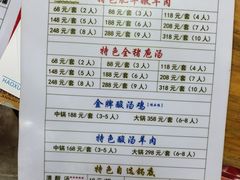 68 元/套 (2人) 88 元/套 (3人) 118 元/套 (4人)
148 元/套 (5人) 158 元/套 (6人) 188 元/套 (7人)
208 元/套 (8人) 288 元/套 (9人) 318 元/套 (10人)
特色全猪庖汤
68 元/套 (2人) 88 元/套 (3人) 118 元/套 (4人)
148 元/套 (5人) 158 元/套 (6人) 188 元/套 (7人)
208 元/套 (8人) 288 元/套 (9人) 318 元/套 (10人)
金牌酸汤鸡
中锅 188 元/套 (3-5人) 大锅 358 元/套 (6-8人)
特色酸汤羊肉
中锅 168 元/套 (3-5人) 大锅 298 元/套 (6-8人)
特色自选锅底